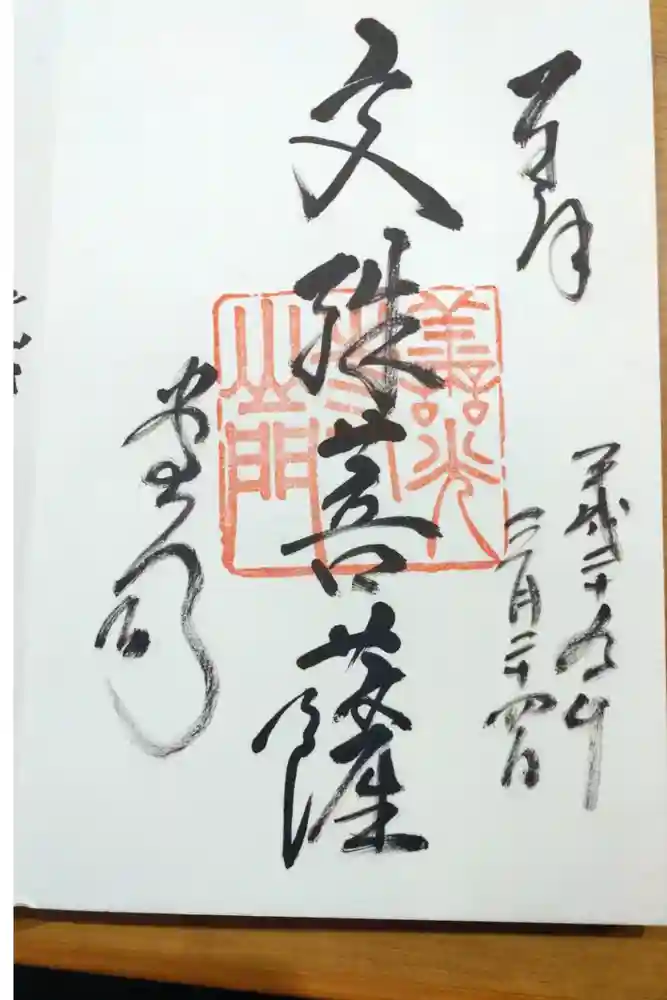 奉拝
平成二十九年
三月二十四日
文殊菩薩
善光
山門
堂司